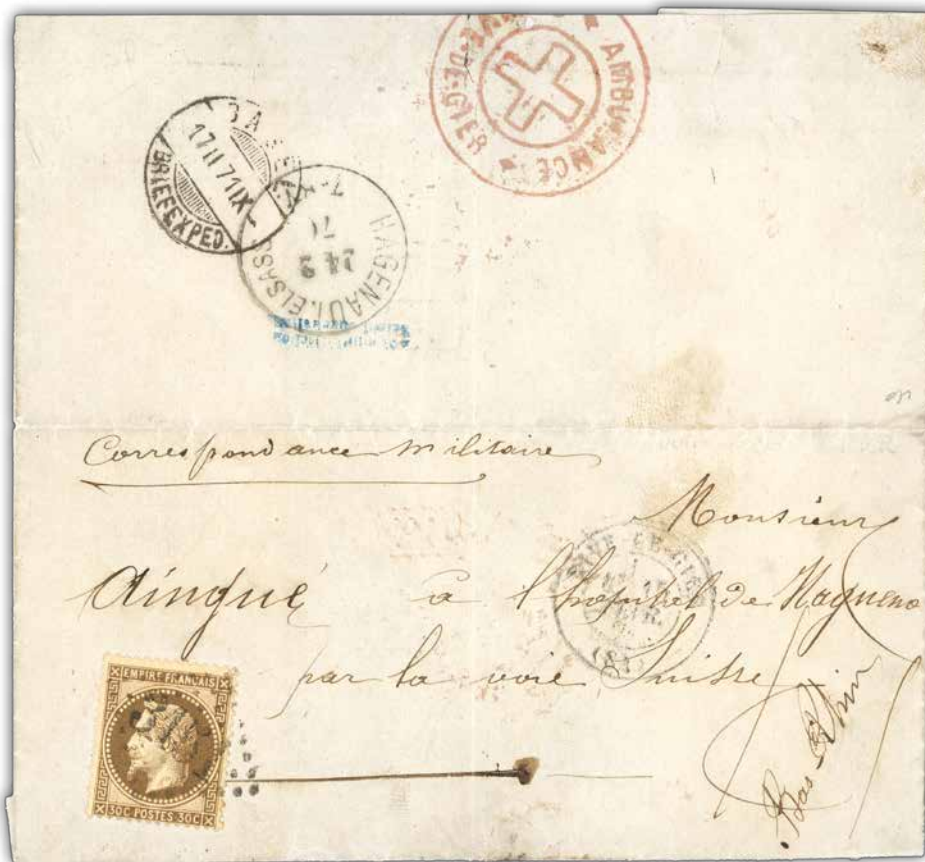 AMBULANCE
DE-GIER
17 II 71 IX
BRIEFEXPED.
HAGENAU I. ELSASS
24 2
71
Correspondance militaire
Monsieur
Aingué à l'hopital de Hagueno
par la voie Suisse
Bas Rhin
EMPIRE FRANÇAIS
30C POSTES 30C